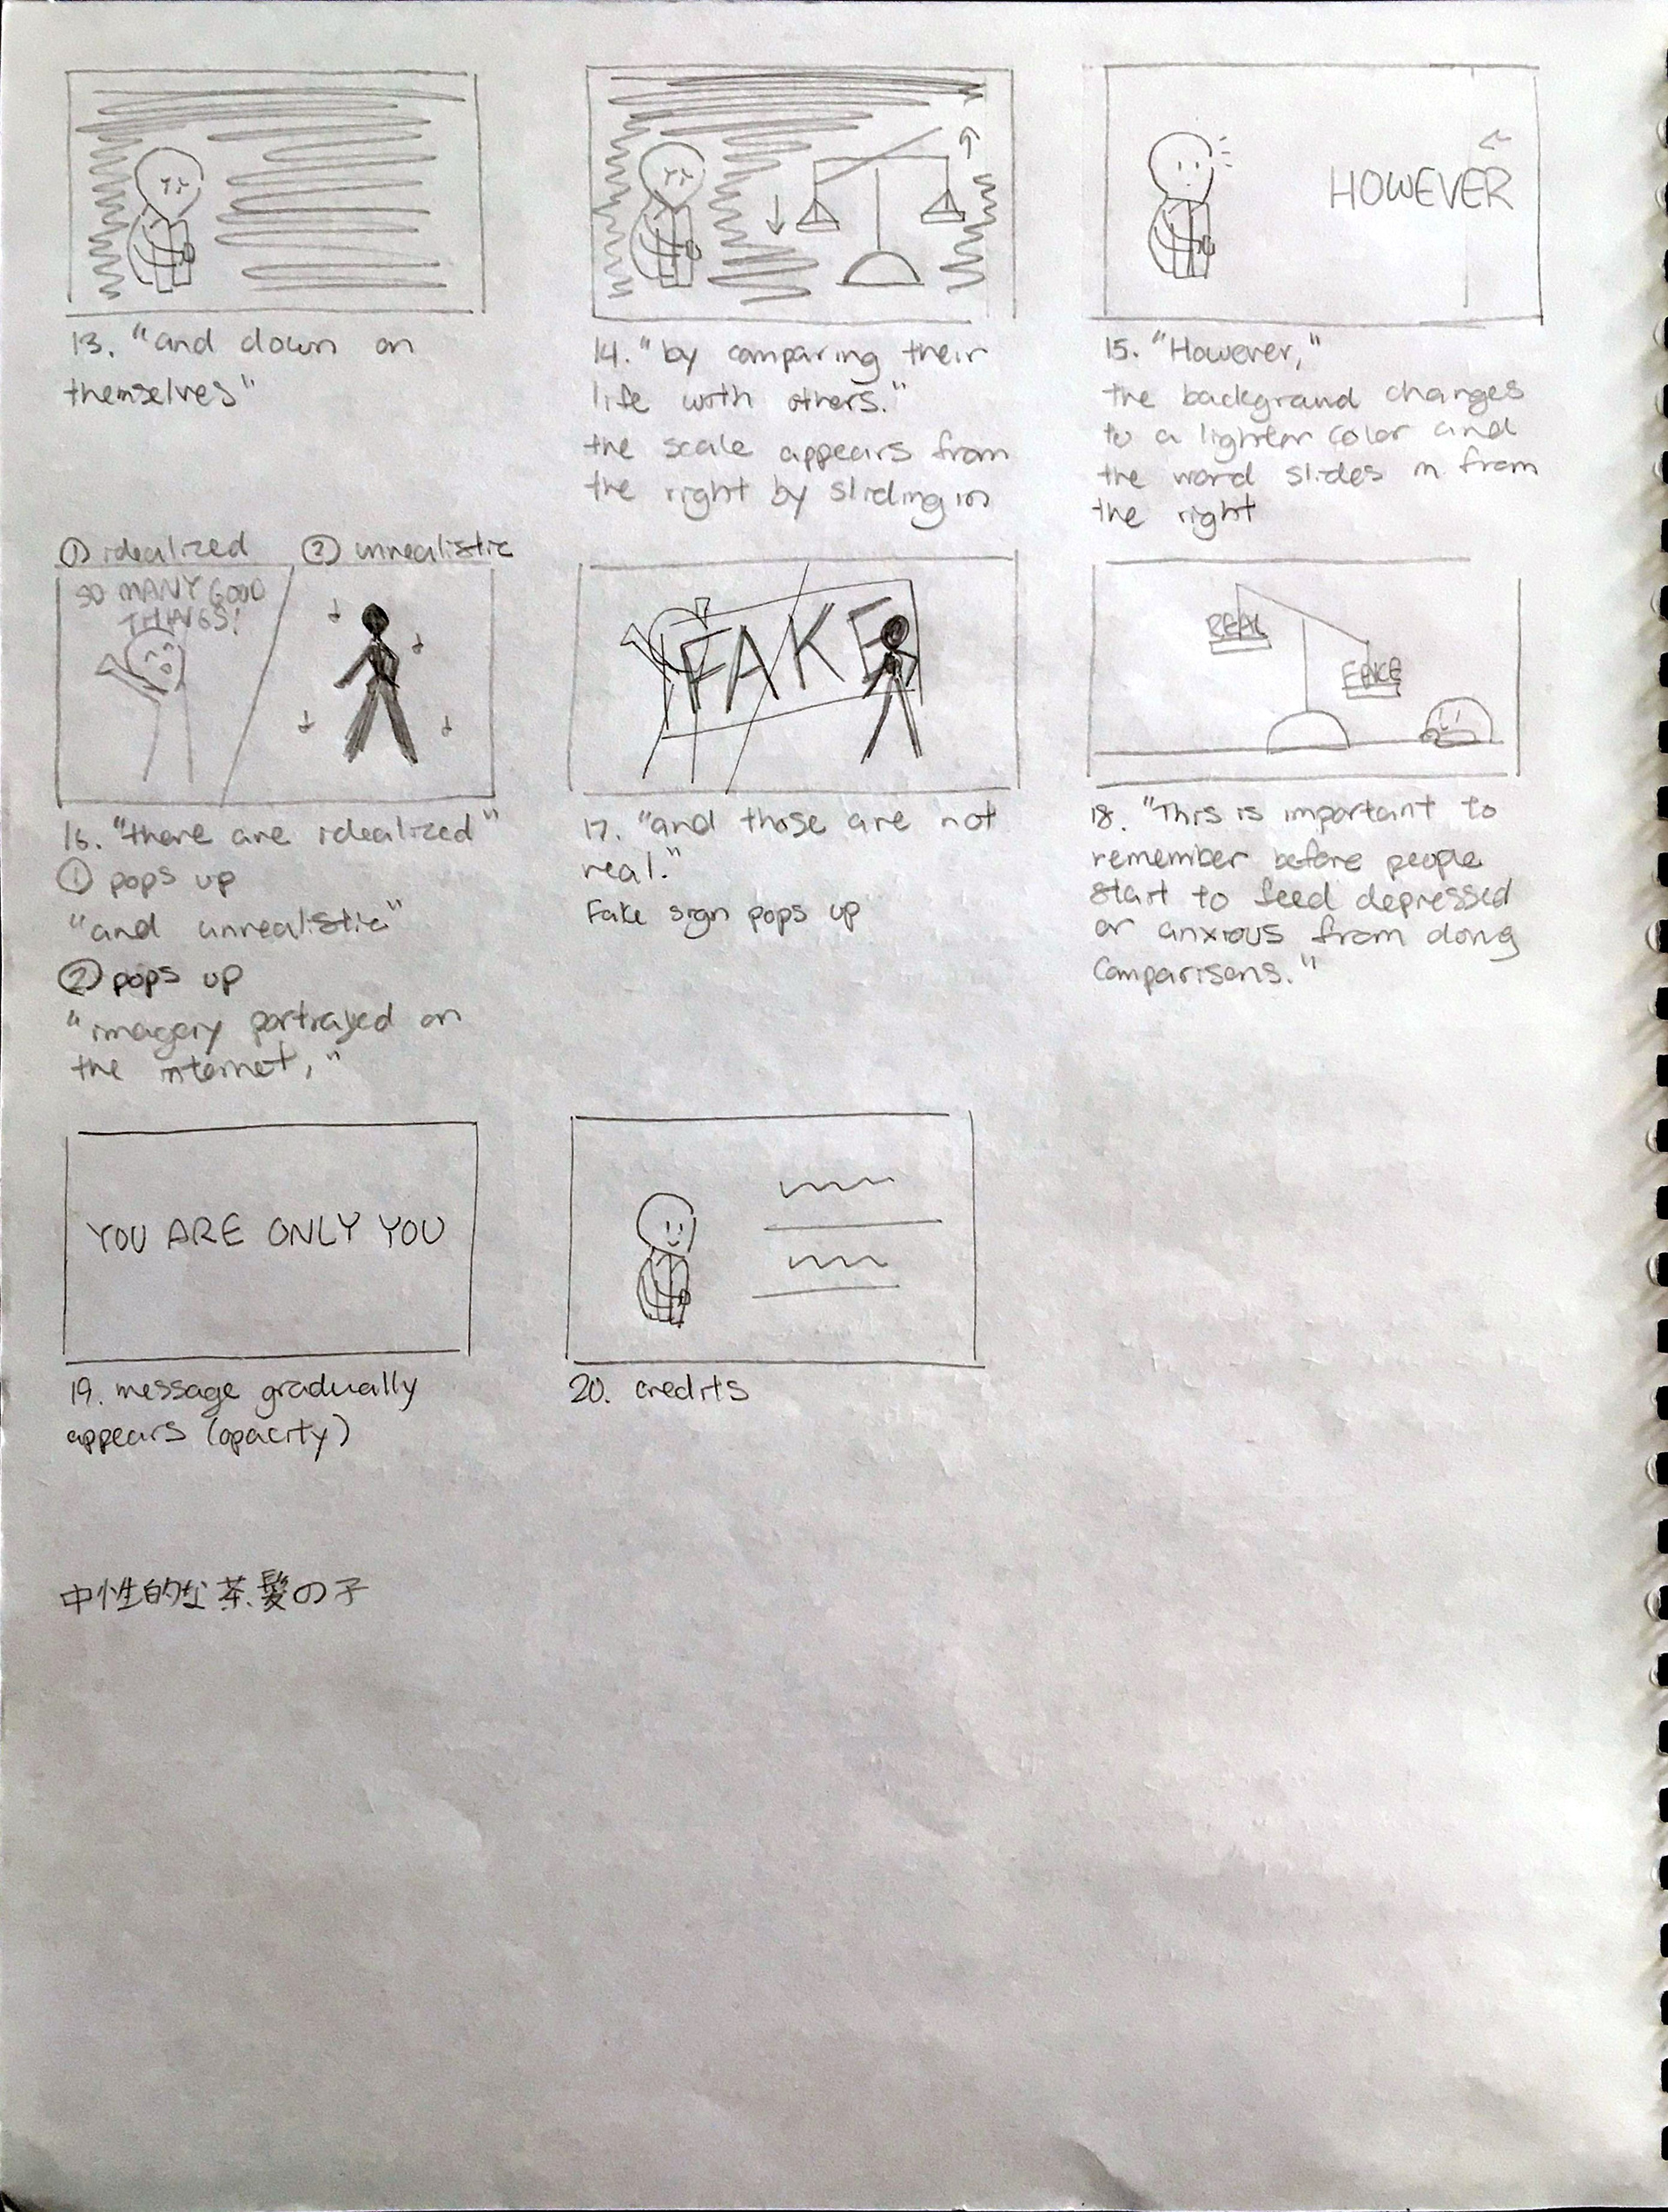 13. "and down on
themselves"
14. "by comparing their
life with others."
the scale appears from
the right by sliding in
HOWEVER
15. "However,"
the background changes
to a lighter color and
the word slides in from
the right
① idealized ② unrealistic
SO MANY GOOD
THINGS!
16. "there are idealized"
① pops up
"and unrealistic"
② pops up
"imagery portrayed on
the internet,"
FAKE
17. "and those are not
real."
Fake sign pops up
REAL
FAKE
18. "This is important to
remember before people
start to feed depressed
or anxious from doing
comparisons."
YOU ARE ONLY YOU
19. message gradually
appears (opacity)
20. credits
中性的な茶髪の子